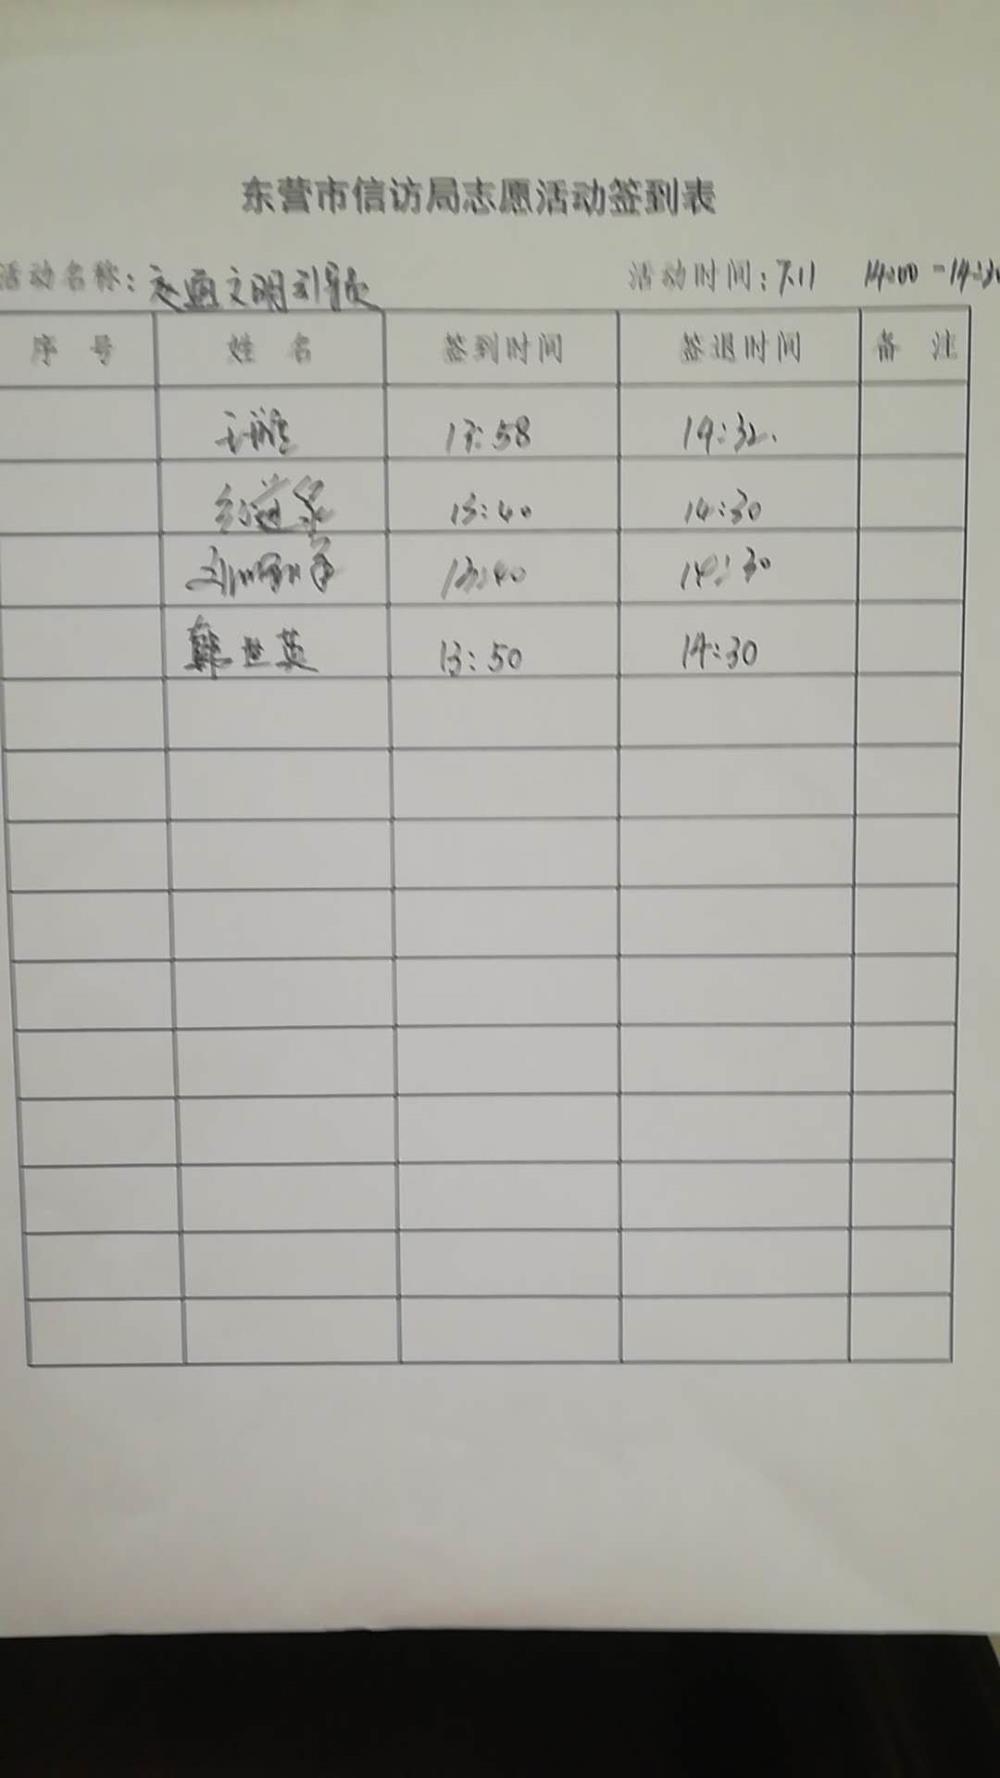 东营市信访局志愿活动签到表
活动名称：交通文明引导 活动时间：7.11 14:00-14:30
序 号 姓 名 签到时间 签退时间 备 注
13:58 14:32.
13:40 14:30
13:40 14:30
韩世英 13:50 14:30